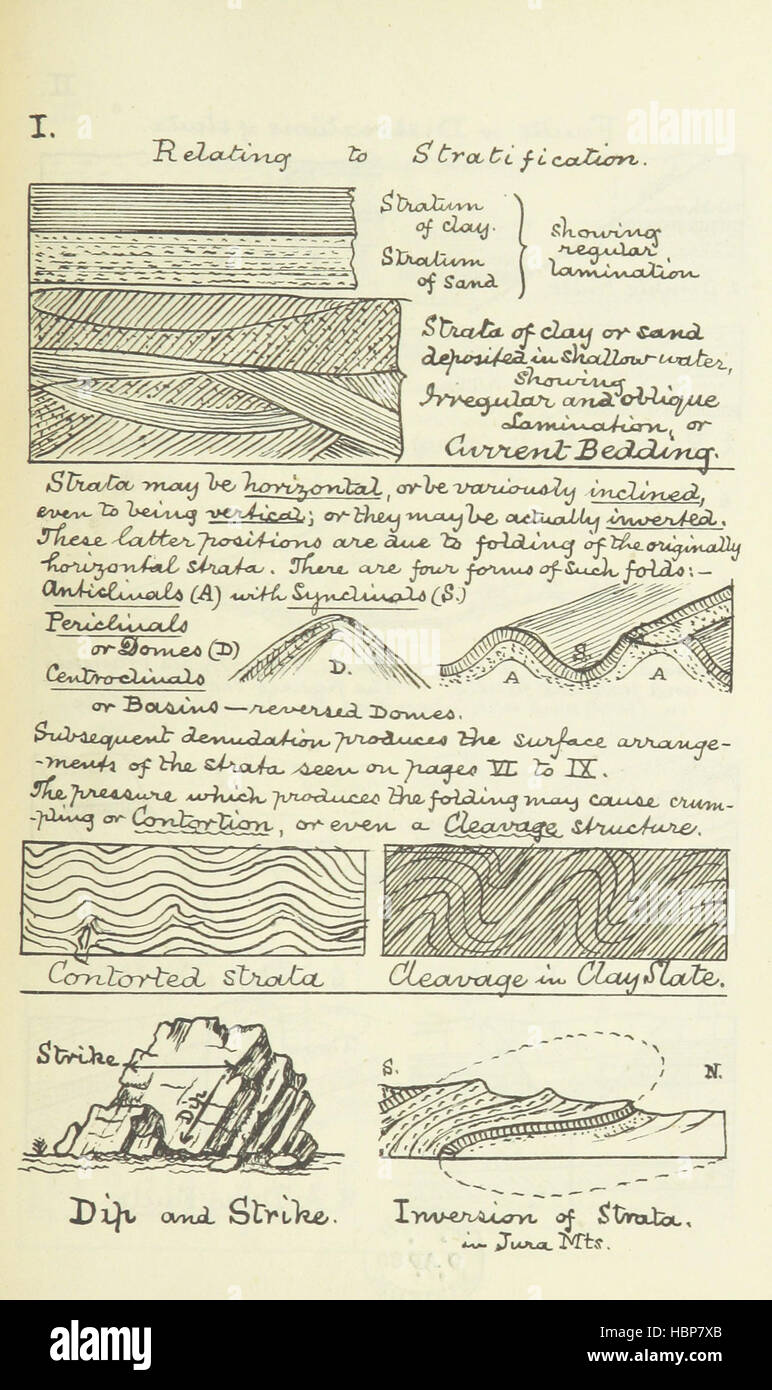 I.
Relating to Stratification.
Stratum
of clay.
Stratum
of Sand
showing
regular
lamination
Strata of clay or sand
deposited in shallow water,
showing
Irregular and oblique
Lamination, or
Current Bedding.
Strata may be horizontal, or be variously inclined,
even to being vertical; or they may be actually inverted.
These latter positions are due to folding of the originally
horizontal strata. There are four forms of such folds:—
Anticlinals (A) with Synclinals (S.)
Periclinals
or Domes (D)
Centroclinals
or Basins — reversed Domes.
D.
S.
A
A
Subsequent denudation produces the surface arrange-
-ments of the strata seen on pages VI to IX.
The pressure which produces the folding may cause crum-
-pling or Contortion, or even a Cleavage structure.
Contorted strata
Cleavage in Clay Slate.
Strike
Dip
S.
N.
Dip and Strike.
Inversion of Strata.
in Jura Mts.
alamy
alamy
alamy
a
a
a
a
alamy
Image ID: HBP7XB
www.alamy.com